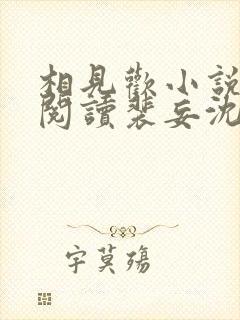 相見歡小說
閱讀裴妄沈
字莫殤